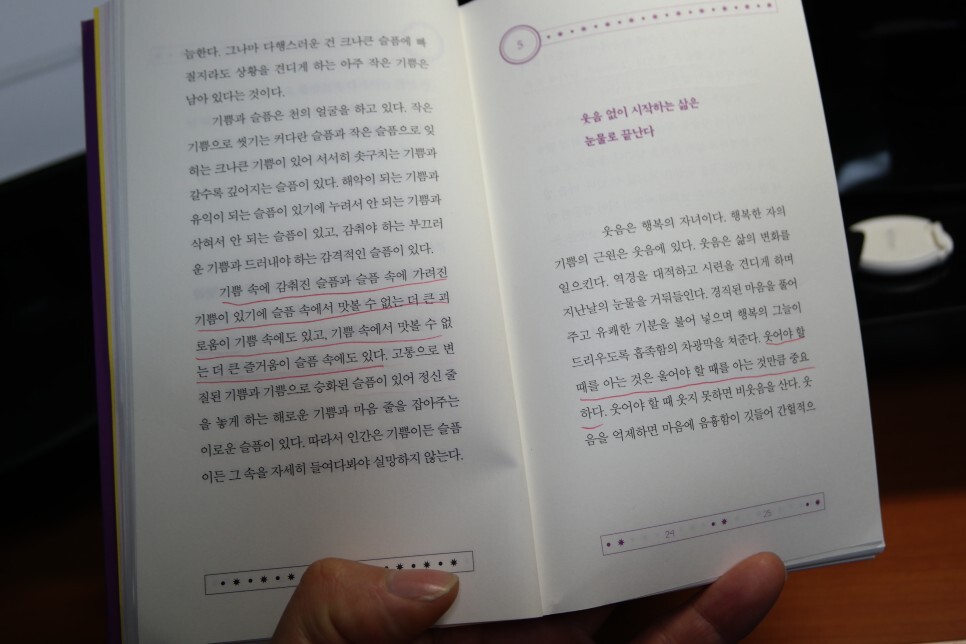 늠한다. 그나마 다행스러운 건 크나큰 슬픔에 빠
질지라도 상황을 견디게 하는 아주 작은 기쁨은
남아 있다는 것이다.
기쁨과 슬픔은 천의 얼굴을 하고 있다. 작은
기쁨으로 씻기는 커다란 슬픔과 작은 슬픔으로 잊
히는 크나큰 기쁨이 있어 서서히 솟구치는 기쁨과
갈수록 깊어지는 슬픔이 있다. 해악이 되는 기쁨과
유익이 되는 슬픔이 있기에 누려서 안 되는 기쁨과
삭혀서 안 되는 슬픔이 있고, 감춰야 하는 부끄러
운 기쁨과 드러내야 하는 감격적인 슬픔이 있다.
기쁨 속에 감춰진 슬픔과 슬픔 속에 가려진
기쁨이 있기에 슬픔 속에서 맛볼 수 없는 더 큰 괴
로움이 기쁨 속에도 있고, 기쁨 속에서 맛볼 수 없
는 더 큰 즐거움이 슬픔 속에도 있다. 고통으로 변
질된 기쁨과 기쁨으로 승화된 슬픔이 있어 정신 줄
을 놓게 하는 해로운 기쁨과 마음 줄을 잡아주는
이로운 슬픔이 있다. 따라서 인간은 기쁨이든 슬픔
이든 그 속을 자세히 들여다봐야 실망하지 않는다.
5
웃음 없이 시작하는 삶은
눈물로 끝난다
웃음은 행복의 자녀이다. 행복한 자의
기쁨의 근원은 웃음에 있다. 웃음은 삶의 변화를
일으킨다. 역경을 대적하고 시련을 견디게 하며
지난날의 눈물을 거둬들인다. 경직된 마음을 풀어
주고 유쾌한 기분을 불어 넣으며 행복의 그늘이
드리우도록 흡족함의 차광막을 쳐준다. 웃어야 할
때를 아는 것은 울어야 할 때를 아는 것만큼 중요
하다. 웃어야 할 때 웃지 못하면 비웃음을 산다. 웃
음을 억제하면 마음에 음흉함이 깃들어 간헐적으
24 25